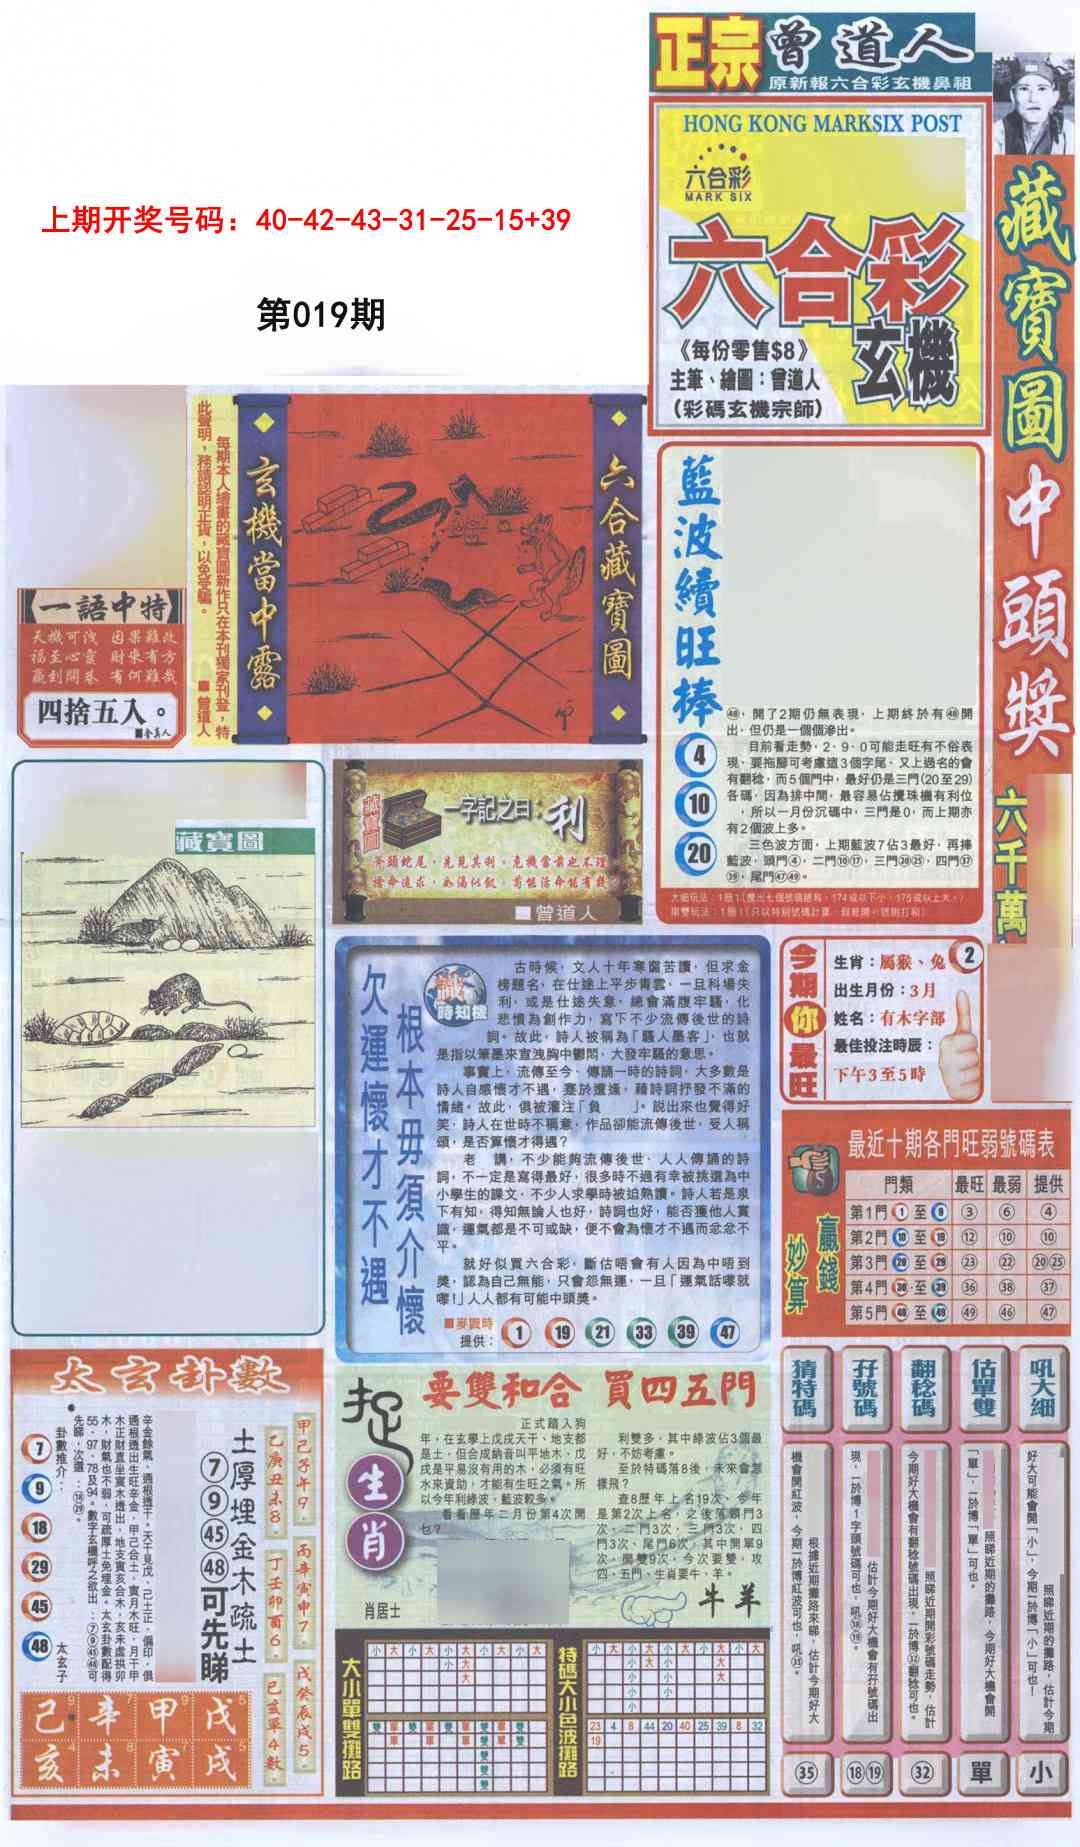 正宗 曾道人
原新報六合彩玄機鼻祖
HONG KONG MARKSIX POST
六合彩
MARK SIX
六合彩
玄機
《每份零售$8》
主筆、繪圖：曾道人
（彩碼玄機宗師）
藏寶圖中頭獎
六千萬
上期开奖号码：40-42-43-31-25-15+39
第019期
每期本人繪畫的藏寶圖新作只在本刊獨家刊登，特
此聲明，務請認明正貨，以免受騙。
■曾道人
玄機當中露
六合藏寶圖
【一語中特】
天機可洩 因果難改
福至心靈 財來有方
贏到開巷 有何難哉
四捨五入。
藏寶圖
一字記之曰：利
斧頭蛇尾，先見其利。危機當前也不理，
■曾道人
藍波續旺捧
4
10
20
㊽，開了2期仍無表現，上期終於有㊽開
出，但仍是一個個滲出。
目前看走勢，2、9、0可能走旺有不俗表
現，要拖腳可考慮這3個字尾，又上過名的會
有翻稔，而5個門中，最好仍是三門(20至29)
各碼，因為排中間，最容易佔攪珠機有利位
，所以一月份沉碼中，三門是0，而上期亦
有2個波上多。
三色波方面，上期藍波7佔3最好，再捧
藍波，頭門④，二門⑩⑰，三門⑳㉕，四門㊲
㊴，尾門㊼㊾。
欠運懷才不遇
根本毋須介懷
識時知機
古時候，文人十年寒窗苦讀，但求金
榜題名，在仕途上平步青雲，一旦科場失
利，或是仕途失意，總會滿腹牢騷，化
悲憤為創作力，寫下不少流傳後世的詩
詞。故此，詩人被稱為「騷人墨客」，也就
是指以筆墨來宣洩胸中鬱悶，大發牢騷的意思。
事實上，流傳至今，傳誦一時的詩詞，大多數是
詩人自感懷才不遇，蹇於遭逢，藉詩詞抒發不滿的
情緒。故此，俱被灌注「負 」。說出來也覺得好
笑，詩人在世時不稱意，作品卻能流傳後世，受人稱
頌，是否算懷才得遇？
老 講，不少能夠流傳後世、人人傳誦的詩
詞，不一定是寫得最好，很多時不過有幸被挑選為中
小學生的課文，不少人求學時被迫熟讀。詩人若是泉
下有知，得知無論人也好，詩詞也好，能否獲他人賞
識，運氣都是不可或缺，便不會為懷才不遇而忿忿不
平。
就好似買六合彩，斷估唔會有人因為中唔到
獎，認為自己無能，只會怨無運，一旦「運氣話嚟就
嚟！」人人都有可能中頭獎。
■麥識時
提供：
1 19 21 33 39 47
今期你最旺
2
生肖：屬猴、兔
出生月份：3月
姓名：有木字部
最佳投注時辰：
下午3至5時
最近十期各門旺弱號碼表
贏錢妙算
門類 最旺 最弱 提供
第1門 1 至 9 ③ ⑥ ④
第2門 10 至 19 ⑫ ⑩ ⑩
第3門 20 至 29 ㉓ ㉒ ⑳㉕
第4門 30 至 39 ㊱ ㊳ ㊲
第5門 40 至 49 ㊾ ㊻ ㊼
太玄卦數
甲己子午9。
乙庚丑未8。
丙辛寅申7。
丁壬卯酉6。
戊癸辰戌5。
己亥單4數。
土厚埋金木疏土
⑦⑨㊺㊽可先睇
辛金餘氣，通根透干。天干見戊、己土正、偏印，俱
通根透出生旺辛金，甲己合土，寅月木旺，月干甲
木正財直坐寅木透出，地支寅亥合木，亥未虛拱卯
木，財氣也不弱，可疏厚土免埋金。太玄卦數配得
55、97、78及94。數字玄機呼之欲出：⑦⑨㊺㊽可
先睇，次選：⑱㉙。
卦數推介：
7
9
18
29
45
48
太玄子
己 辛 甲 戊
亥 未 寅 戌
捉生肖
要雙和合 買四五門
正式踏入狗
年，在玄學上戊戌天干、地支都
是土，但合成納音叫平地木，戊
戌是平易沒有用的木，必須有旺
水來資助，才能有生旺之氣。所
以今年利綠波，藍波較多。
看看歷年二月份第4次開
乜？
利雙多，其中綠波佔3個最
好，不妨考慮。
至於特碼落8後，未來會怎
樣飛？
查8歷年上名19次，今年
是第2次上名，之後落頭門3
次，二門3次，三門3次，四
門3次、尾門6次，其中開單9
次，開雙9次，今次要雙，攻
四、五門、生肖要牛、羊。
牛羊
肖居士
大小單雙攤路
特碼大小色波攤路
23 4 8 44 20 40 25 39 8 32
19
猜特碼
根據近期攤路來睇，估計今期好大
機會開紅波，今期一於博紅波可也，吼㉟。
㉟
孖號碼
估計今期好大機會有孖號碼出
現，一於博1字頭號碼可也，吼⑱⑲。
⑱⑲
翻稔碼
照睇近期開彩號碼走勢，估計
今期好大機會有翻稔號碼出現，一於博㉜翻稔可也。
㉜
估單雙
照睇近期的攤路，今期好大機會開
「單」，一於博「單」可也。
單
吼大細
照睇近期的攤路，估計今期
好大可能會開「小」，今期一於博「小」可也！
小